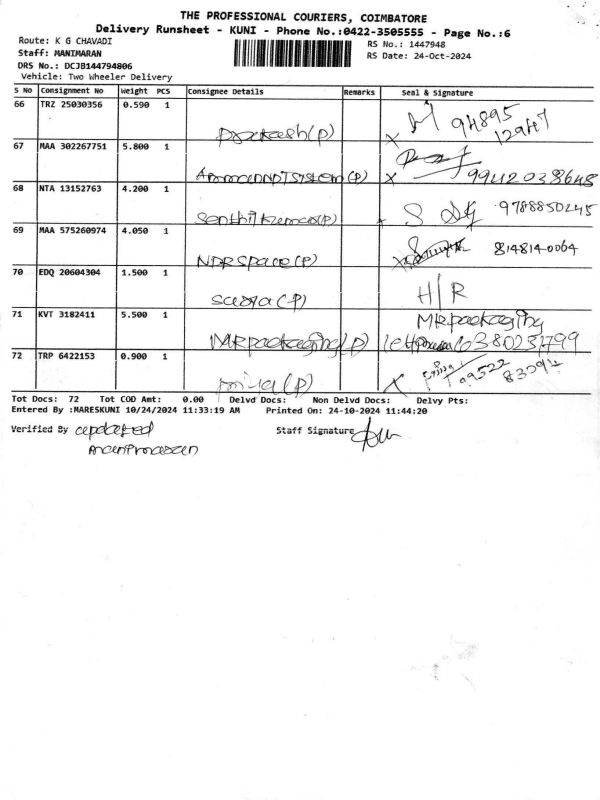 THE PROFESSIONAL COURIERS, COIMBATORE
Delivery Runsheet - KUNI - Phone No.:0422-3505555 - Page No.:6
Route: K G CHAVADI
RS No.: 1447948
Staff: MANIMARAN
RS Date: 24-Oct-2024
DRS No.: DCJB144794806
Vehicle: Two Wheeler Delivery
S No Consignment No Weight PCS Consignee Details Remarks Seal & Signature
66 TRZ 25030356 0.590 1
prakash(p) 94895
12947
67 MAA 302267751 5.800 1
(p) x 9942038648
68 NTA 13152763 4.200 1
Senthil kumar(p) 9788850245
69 MAA 575260974 4.050 1
NDR space(p) x 8148140064
70 EDQ 20604304 1.500 1
(p) H/R
71 KVT 3182411 5.500 1
MR packaging
MR packaging(p) 6380231799
72 TRP 6422153 0.900 1
(p) x 99522 83094
Tot Docs: 72 Tot COD Amt: 0.00 Delvd Docs: Non Delvd Docs: Delvy Pts:
Entered By :MARESKUNI 10/24/2024 11:33:19 AM Printed On: 24-10-2024 11:44:20
Verified By updated Staff Signature